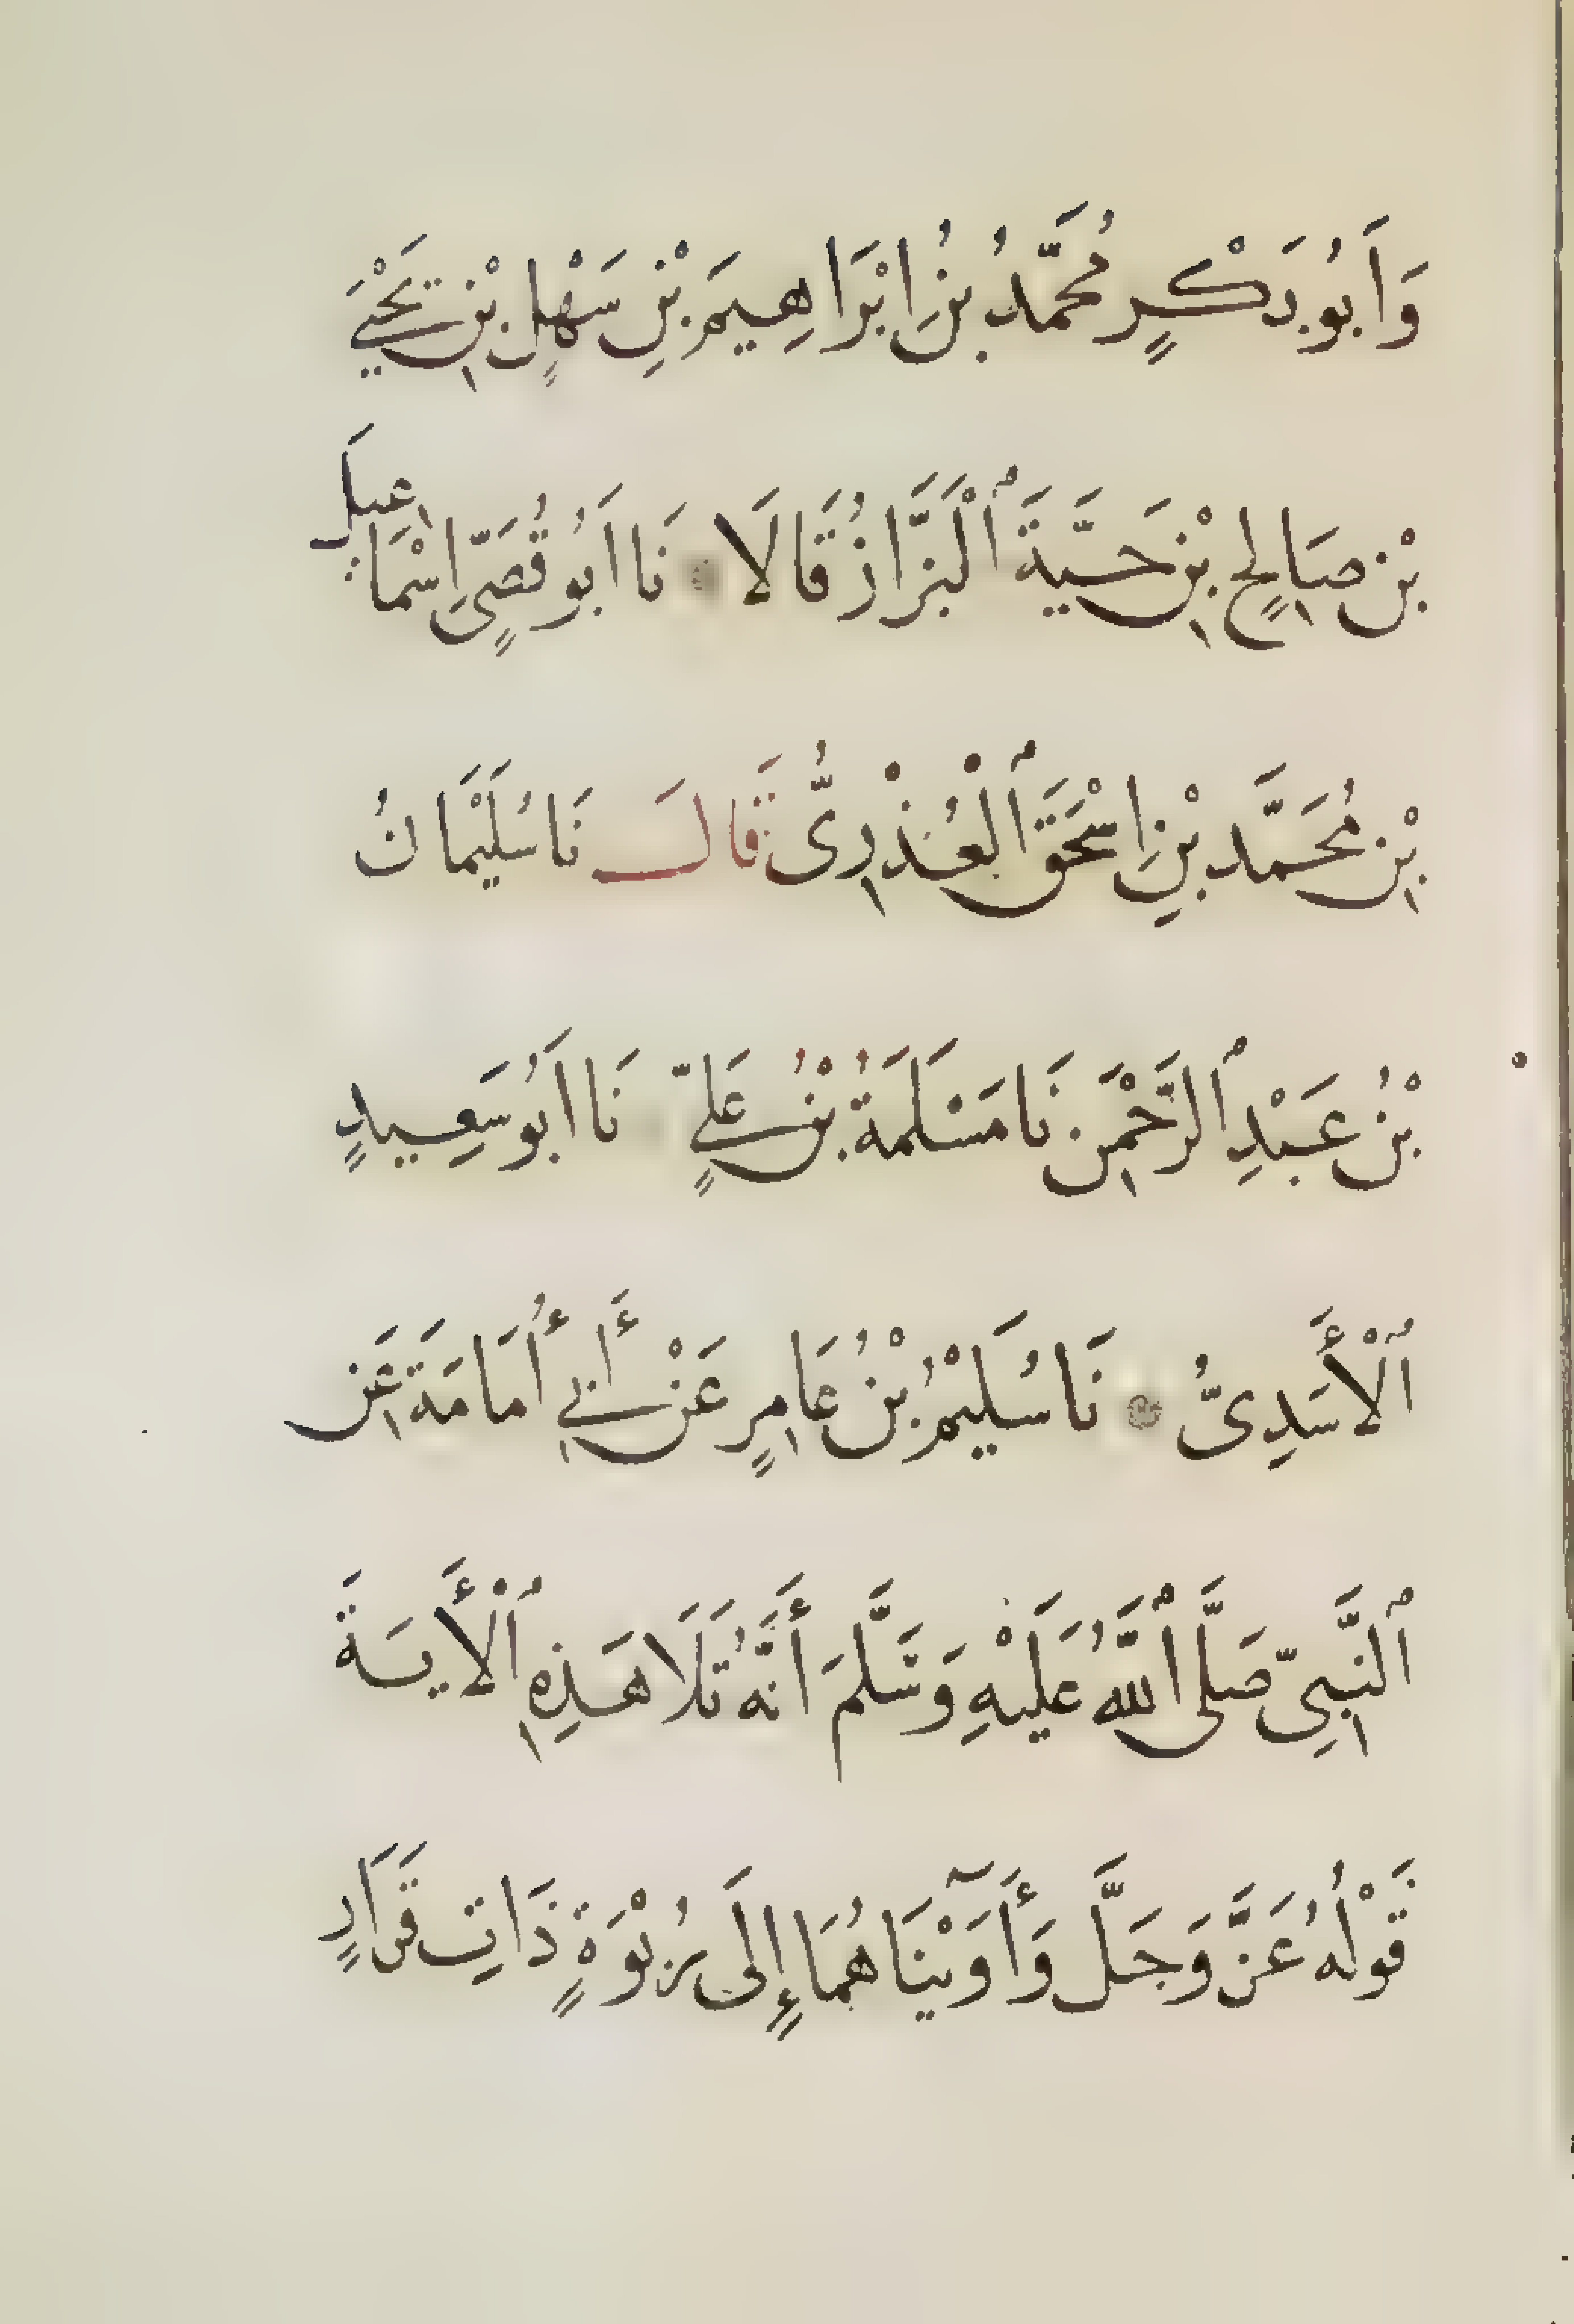 وَاَبُو بَكْرٍ مُحَمَّدُ بْنُ اِبْرَاهِيمَ بْنِ سَهْلِ بْنِ يَحْيَى
بْنِ صَالِحِ بْنِ حَيَّةَ ٱلْبَزَّازُ قَالَا نَا اَبُو قُصَيٍّ اِسْمَاعِيلُ
بْنِ مُحَمَّدِ بْنِ اِسْحَقَ ٱلْعُذْرِىُّ قَالَ نَا سُلَيْمَانُ
بْنُ عَبْدِ ٱلرَّحْمَنِ نَا مَسْلَمَةُ بْنُ عَلِيٍّ نَا اَبُو سَعِيدٍ
ٱلْأَسَدِىُّ نَا سُلَيْمُ بْنُ عَامِرٍ عَنْ أَبِي أُمَامَةَ عَنِ
ٱلنَّبِىِّ صَلَّى ٱللَّهُ عَلَيْهِ وَسَلَّمَ أَنَّهُ تَلَا هَذِهِ ٱلْأَيَةَ
قَوْلُهُ عَزَّ وَجَلَّ وَأَوَيْنَاهُمَا إِلَى رُبْوَةٍ ذَاتِ قَرَارٍ